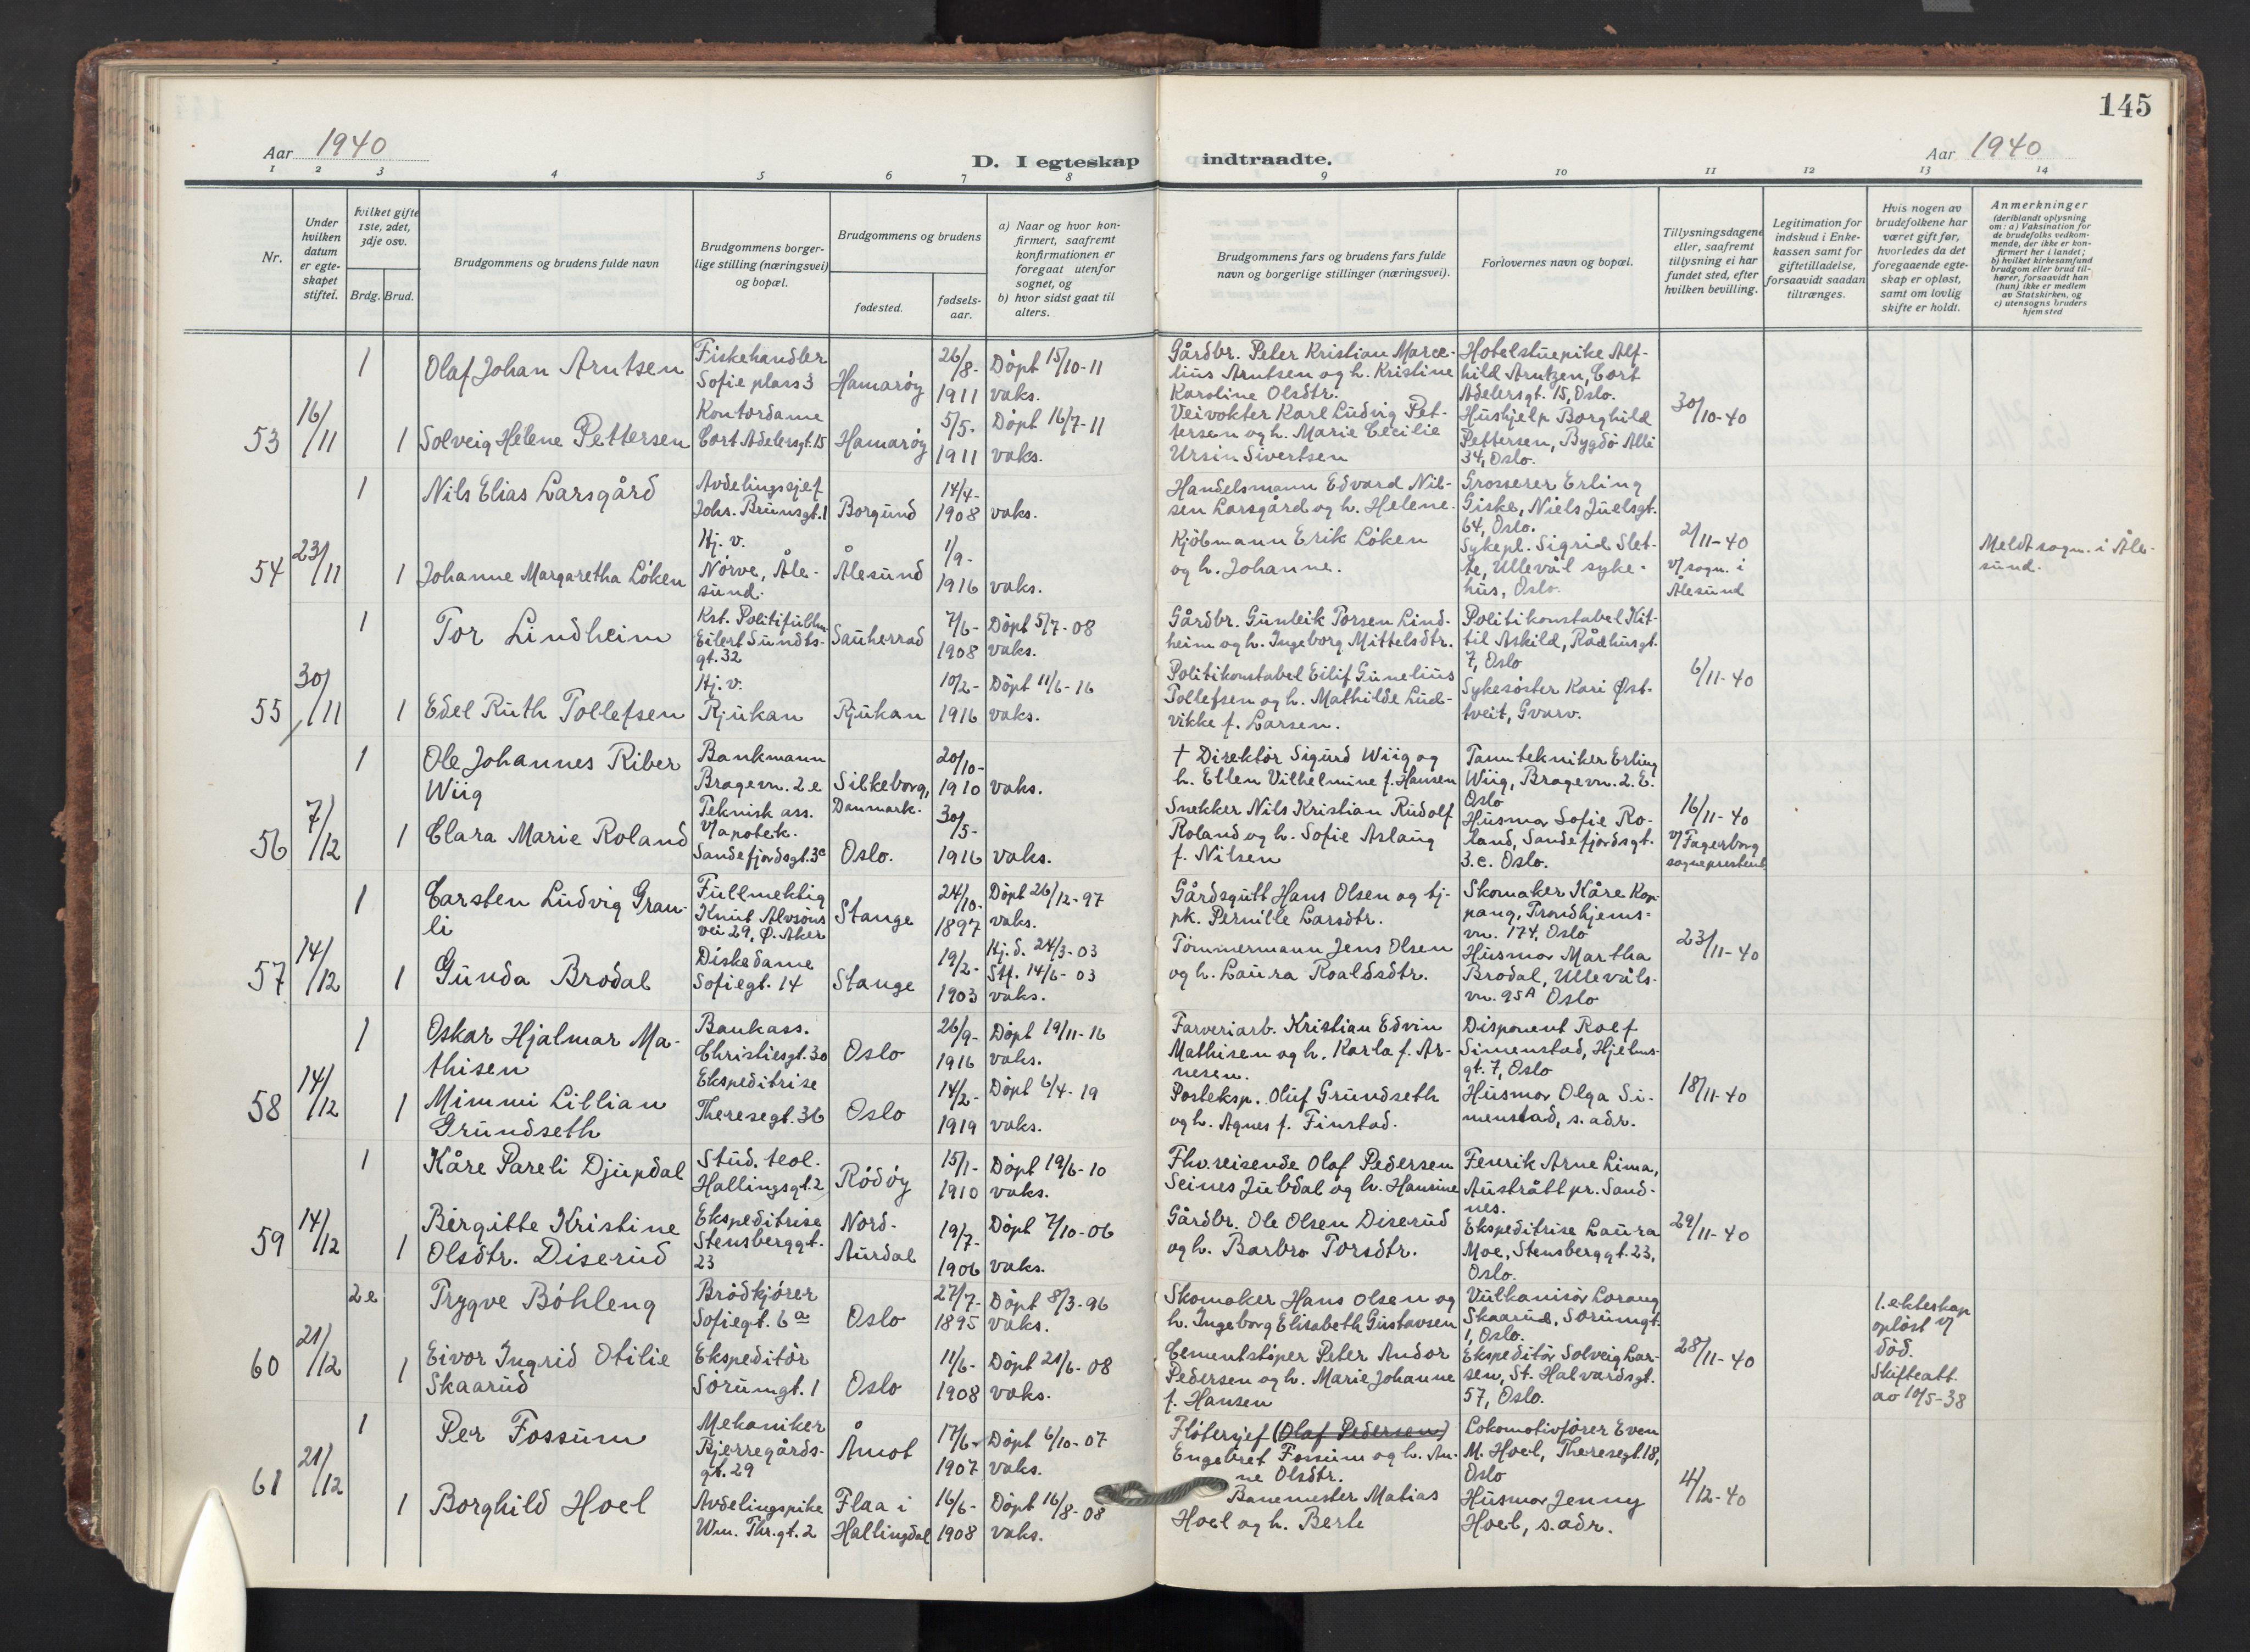 145
Aar 1940
D. I egteskap indtraadte.
Aar 1940
1 2 3 4 5 6 7 8 9 10 11 12 13 14
Nr.
Under
hvilken
datum
er egte-
skapet
stiftel.
hvilket gifte
1ste, 2det,
3dje osv.
Brdg. Brud.
Brudgommens og brudens fulde navn
Brudgommens borger-
lige stilling (næringsvei)
og bopæl.
Brudgommens og brudens
fødested.
fødsels-
aar.
a) Naar og hvor kon-
firmert, saafremt
konfirmationen er
foregaat utenfor
sognet, og
b) hvor sidst gaat til
alters.
Brudgommens fars og brudens fars fulde
navn og borgerlige stillinger (næringsvei).
Forlovernes navn og bopæl.
Tillysningsdagene
eller, saafremt
tillysning ei har
fundet sted, efter
hvilken bevilling.
Legitimation for
indskud i Enke-
kassen samt for
giftetilladelse,
forsaavidt saadan
tiltrænges.
Hvis nogen av
brudefolkene har
været gift før,
hvorledes da det
foregaaende egte-
skap er opløst,
samt om lovlig
skifte er holdt.
Anmerkninger
(deriblandt oplysning
om: a) Vaksination for
de brudefolks vedkom-
mende, der ikke er kon-
firmert her i landet;
b) hvilket kirkesamfund
brudgom eller brud til-
hører, forsaavidt han
(hun) ikke er medlem
av Statskirken, og
c) utensogns bruders
hjemsted
53
16/11
1
Olaf Johan Arntsen
Fiskehandler
Sofie plass 3
Hamarøy
26/8-
1911
Døpt 15/10-11
vaks.
Gårdbr. Peter Kristian Marce-
lius Arntsen og h. Kristine
Karoline Olsdtr.
Hotelstuepike Alf-
hild Arntzen, Cort
Adelersgt. 15, Oslo.
30/10-40
1
Solveig Helene Pettersen
Kontordame
Cort Adelersgt. 15
Hamarøy
5/5-
1911
Døpt 16/7-11
vaks.
Veivokter Karl Ludvig Pet-
tersen og h. Marie Cecilie
Ursin Sivertsen
Hushjelp Borghild
Pettersen, Bygdø Alle
34, Oslo.
54
23/11
1
Nils Elias Larsgård
Avdelingssjef
Johs. Brunsgt. 1
Borgund
14/4-
1908
vaks.
Handelsmann Edvard Nil-
sen Larsgård og h. Helene.
Grosserer Erling
Giske, Niels Juelsgt.
64, Oslo.
2/11-40
v/ sogn. i
Ålesund
1
Johanne Margaretha Løken
Hj. v.
Nørve, Åle-
sund.
Ålesund
1/9-
1916
vaks.
Kjøbmann Erik Løken
og h. Johanne.
Sykepl. Sigrid Slet-
te, Ullevål syke-
hus, Oslo.
Meldt sogn. i Åle-
sund.
55
30/11
1
Tor Lindheim
Kst. Politifullm.
Eilert Sundts-
gt. 32
Sauherrad
7/6-
1908
Døpt 5/7-08
vaks.
Gårdbr. Gunleik Torsen Lind-
heim og h. Ingeborg Mittelsdtr.
Politikonstabel Kit-
til Askild, Rådhusgt.
7, Oslo
6/11-40
1
Edel Ruth Tollefsen
Hj. v.
Rjukan
Rjukan
10/2-
1916
Døpt 11/6-16
vaks.
Politikonstabel Eilif Gunelius
Tollefsen og h. Mathilde Lud-
vikke f. Larsen.
Sykesøster Kari Øst-
tveit, Gvarv.
56
7/12
1
Ole Johannes Riber
Wiig
Bankmann
Bragevn. 2 e
Silkeborg,
Danmark.
20/10-
1910
vaks.
† Direktør Sigurd Wiig og
h. Ellen Vilhelmine f. Hansen
Tanntekniker Erling
Wiig, Bragevn. 2. E.
Oslo
16/11-40
v/ Fagerborg
sogneprestemb.
1
Clara Marie Roland
Teknisk ass.
v/ apotek.
Sandefjordsgt. 3c
Oslo.
30/5-
1916
vaks.
Snekker Nils Kristian Rudolf
Roland og h. Sofie Aslaug
f. Nilsen
Husmor Sofie Ro-
land, Sandefjordsgt.
3.c. Oslo.
57
14/12
1
Carsten Ludvig Gran-
li
Fullmektig
Knut Alvsøns
vei 29, Ø. Aker
Stange
24/10-
1897
Døpt 26/12-97
vaks.
Gårdsgutt Hans Olsen og tj-
pk. Pernille Larsdtr.
Skomaker Kåre Kop-
pang, Trondhjems-
vn. 174, Oslo
23/11-40
1
Gunda Brodal
Diskedame
Sofiegt. 14
Stange
19/2-
1903
Hj.d. 24/3-03
Stf. 14/6-03
vaks.
Tømmermann Jens Olsen
og h. Laura Roaldsdtr.
Husmor Martha
Brodal, Ullevåls-
vn. 95A Oslo
58
14/12
1
Oskar Hjalmar Ma-
thisen
Bankass.
Christiesgt. 30
Oslo
26/9-
1916
Døpt 19/11-16
vaks.
Farveriarb. Kristian Edvin
Mathisen og h. Karla f. Ar-
nesen.
Disponent Rolf
Simenstad, Hjelms-
gt. 7, Oslo
18/11-40
1
Mimmi Lillian
Grundseth
Ekspeditrise
Theresegt. 36
Oslo
14/2-
1919
Døpt 6/4-19
vaks.
Posteksp. Oluf Grundseth
og h. Agnes f. Finstad.
Husmor Olga Si-
menstad, s. adr.
59
14/12
1
Kåre Pareli Djupdal
Stud. teol.
Hallingsgt. 2
Rødøy
15/1-
1910
Døpt 19/6-10
vaks.
Fhv. reisende Olaf Pedersen
Seines Jubdal og h. Hansine
Fenrik Arne Lima,
Austrått pr. Sand-
nes.
29/11-40
1
Birgitte Kristine
Olsdtr. Diserud
Ekspeditrise
Stensberggt.
23
Nord-
Aurdal
19/7-
1906
Døpt 7/10-06
vaks.
Gårdbr. Ole Olsen Diserud
og h. Barbro Torsdtr.
Ekspeditrise Laura
Moe, Stensberggt. 23,
Oslo.
60
21/12
2e
Trygve Bøhleng
Brødkjører
Sofiegt. 6a
Oslo
27/7-
1895
Døpt 8/3-96
vaks.
Skomaker Hans Olsen og
h. Ingeborg Elisabeth Gustavsen
Vulkanisør Lorang
Skaarud, Sørumgt.
1, Oslo.
28/11-40
1. ekteskap
opløst v/
død.
Skifteatt.
av 10/5-38
1
Eivor Ingrid Otilie
Skaarud
Ekspeditør
Sørumgt. 1
Oslo
11/6-
1908
Døpt 21/6-08
vaks.
Cementstøper Peter Andor
Pedersen og h. Marie Johanne
f. Hansen
Ekspeditør Solveig Lar-
sen, St. Halvardsgt.
57, Oslo.
61
21/12
1
Per Fossum
Mekaniker
Bjerregårds-
gt. 29
Åmot
17/6-
1907
Døpt 6/10-07
vaks.
Fløtersjef (Olaf Pedersen)
Engebret Fossum og h. An-
ne Olsdtr.
Lokomotivfører Even
M. Hoel, Theresegt. 18,
Oslo
4/12-40
1
Borghild Hoel
Avdelingspike
Wm. Thr.gt. 2
Flaa i
Hallingdal
16/6-
1908
Døpt 16/8-08
vaks.
Banemester Matias
Hoel og h. Berte
Husmor Jenny
Hoel, s. adr.